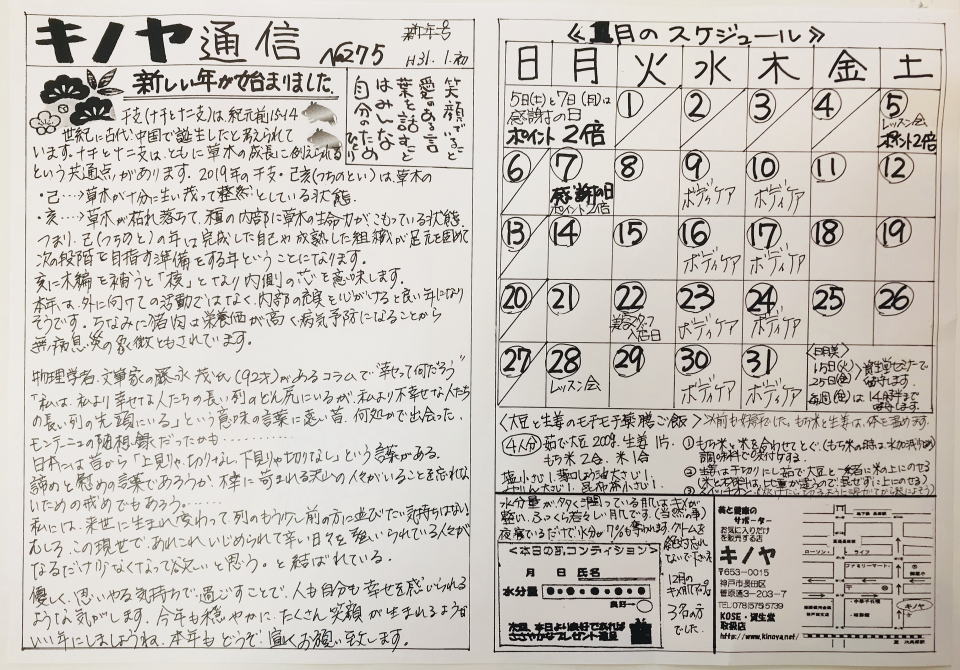 キノヤ通信
No275
新年号
H31.1.初
新しい年が始まりました
笑顔でいること
愛のある言
葉を話すこと
はみんな
自分のため
干支(十干と十二支)は紀元前15~14
世紀に古代中国で誕生したと考えられて
います。十干と十二支は、ともに草木の成長に例えられる
という共通点があります。2019年の干支・己亥(つちのとい)は草木の
・己…→草木が十分に生い茂って整然としている状態。
・亥…→草木が枯れ落ちて、種の内部に草木の生命力がこもっている状態。
つまり、己(つちのと)の年は完成した自己や成熟した組織が足元を固めて
次の段階を目指す準備をする年ということになります。
亥に木編を補うと「核」となり内側の芯を意味します。
本年は、外に向けての活動ではなく、内部の充実を心がけると良い年になり
そうです。ちなみに猪肉は栄養価が高く病気予防になることから
無病息災の象徴ともされています。
物理学者、文筆家の藤永茂氏(92才)があるコラムで"幸せって何だろう"
「私は、私より幸せな人たちの長い列のどん尻にいるが、私より不幸せな人たち
の長い列の先頭にいる」という意味の言葉に遠い昔、何処かで出会った。
モンテーニュの随想録だったかも…………
日本には昔から「上見りゃ切りなし、下見りゃ切りなし」という言葉がある。
諦めと慰めの言葉であろうが、幸に恵まれる沢山の人々がいることを忘れな
いための戒めでもあろう。……
私には、来世に生まれ変わって、列のもう少し前の方に並びたい気持ちはない
むしろ、この現世で、あれこれいじめられて辛い日々を強いられている人々が
なるだけ少なくなって欲しいと思う。と結ばれている。
優しく、思いやる気持ちで過ごすことで、人も自分も幸せを感じられる
ような気がします。今年も穏やかに、たくさん笑顔が生まれるような
いい年にしましょうね。本年もどうぞ宜しくお願い致します。
≪1月のスケジュール≫
日 月 火 水 木 金 土
5日(土)と7日(月)は
感謝の日
ポイント2倍
1 2 3 4 5
レッスン会
ポイント2倍
6 7 8 9 10 11 12
感謝の日
ポイント2倍
ボディケア ボディケア
13 14 15 16 17 18 19
ボディケア ボディケア
20 21 22 23 24 25 26
入店日
ボディケア ボディケア
27 28 29 30 31
レッスン会
ボディケア ボディケア
15日(火)
25日(金)
毎週(金)は14時半まで
<大豆と生姜のモチモチ薬膳ご飯>
もち米と生姜は、体を温めます。
(4人分) 茹で大豆200g、生姜1片、
もち米2合、米1合
塩小さじ1、薄口しょう油大さじ1、
みりん大さじ1、昆布茶小さじ1
①もち米と米を合わせてとぐ。
②生姜は千切りにし茹で大豆と一緒に米の上にのせる
水分量が多く潤っている肌はキメが
整い、ふっくら若々しい肌です。(当然の事)
<本日の肌コンディション>
月 日 氏名
水分量
良好→
次回、本日より良好であれば
ささやかなプレゼント進呈
12月の
3名の方
でした。
美と健康の
サポーター
お気に入りだけ
を販売する店
キノヤ
〒653-0015
神戸市長田区
菅原通3-203-7
TEL078)575-5739
KOSE・資生堂
取扱店
http://www.kinoya.net/
ローソン
ライフ
ファミリーマート
キノヤ